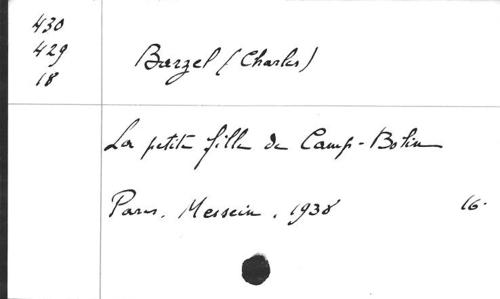 430
429
18
Barzel (Charles)
La petite fille du Camp-Botin
Paris, Messein, 1938 16.